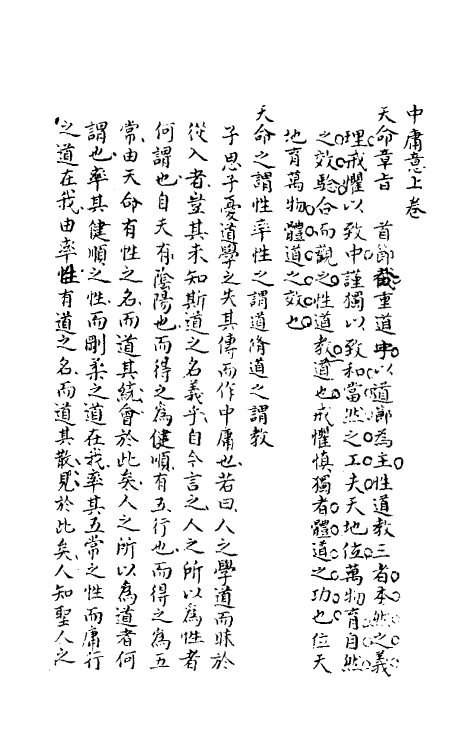 中庸意上卷
天命章旨　首節發重道字以道節為主性道教三者本然之義
理戒懼以致中謹獨以致和當然之工夫天地位萬物育自然
之效騐合而觀之性道教道也戒懼慎獨者體道之功也位天
地育萬物體道之效也
天命之謂性率性之謂道脩道之謂教
子思子憂道學之失其傳而作中庸也若曰人之學道而昧於
從入者豈其未知斯道之名義乎自今言之人之所以為性者
何謂也自夫有陰陽也而得之為健順有五行也而得之為五
常由天命有性之名而道其統會於此矣人之所以為道者何
謂也率其健順之性而剛柔之道在我率其五常之性而庸行
之道在我由率性有道之名而道其散見於此矣人知聖人之